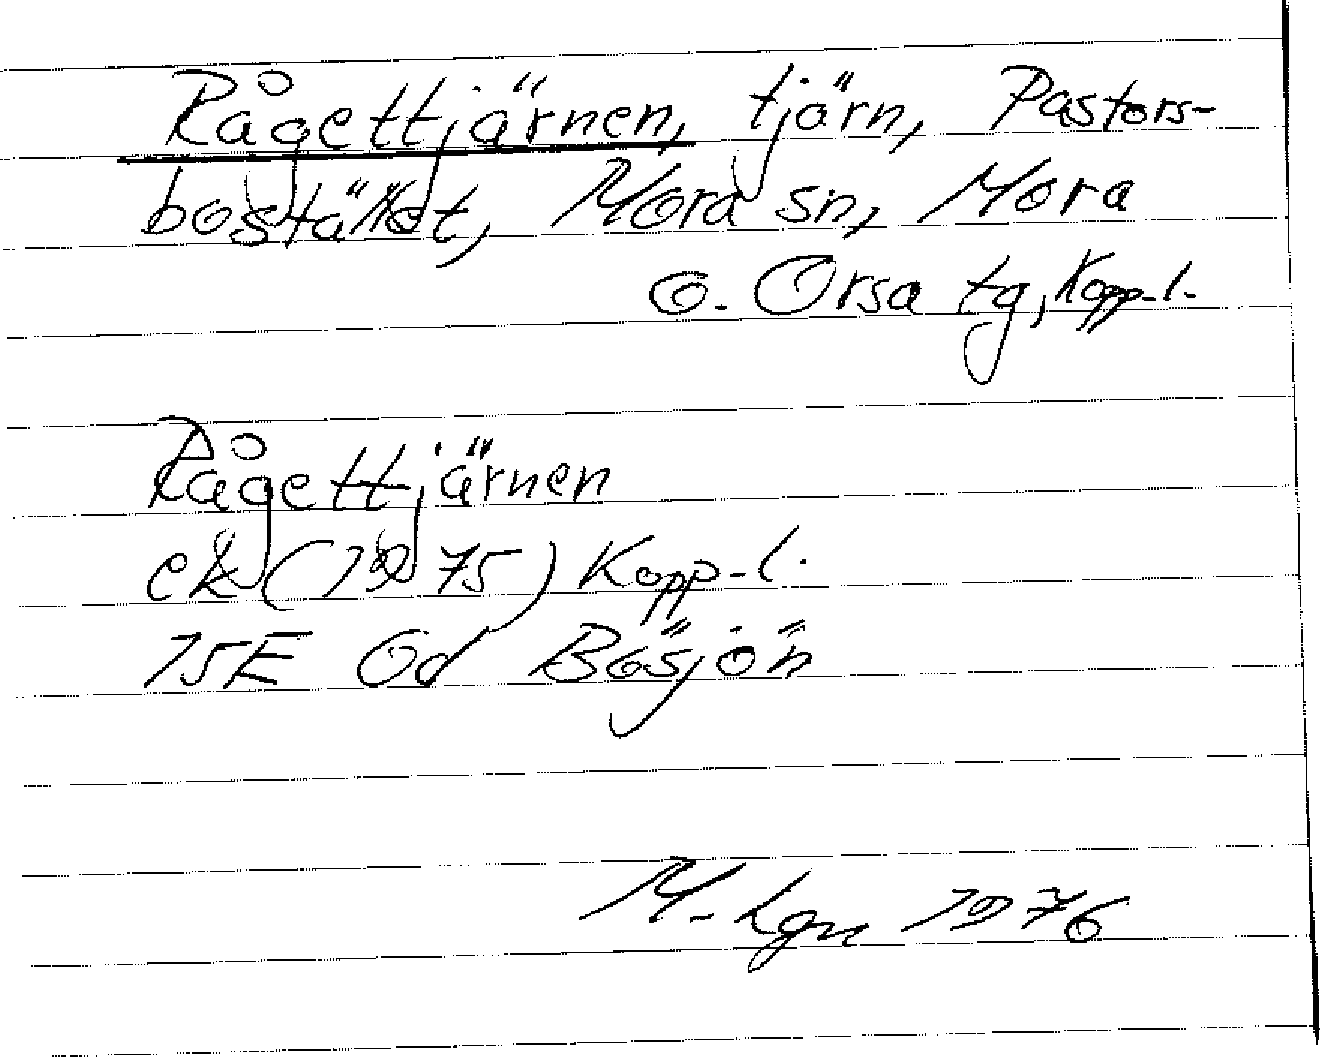 Rågettjärnen, tjärn, Pastors-
bostället, Mora sn, Mora
o. Orsa tg, Kopp-l.
Rågettjärnen
ek (1975) Kopp-l.
15E 0d Bösjön
M. Lgn 1976